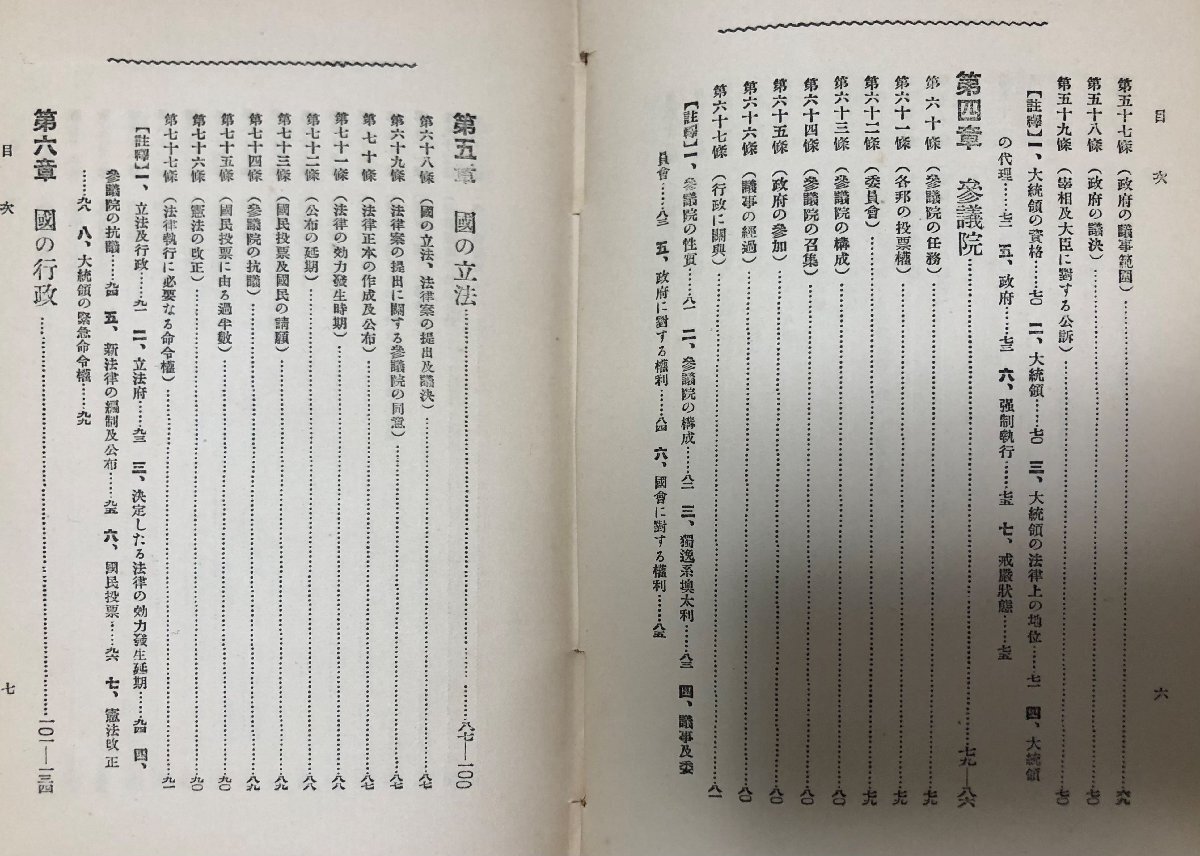 目次
六
第五十七條（政府の議事範圍）……六九
第五十八條（政府の議決）……七〇
第五十九條（宰相及大臣に對する公訴）……七〇
【註釋】一、大統領の資格……七〇　二、大統領……七〇　三、大統領の法律上の地位……七一　四、大統領
の代理……七二　五、政府……七三　六、强制執行……七五　七、戒嚴狀態……七五
第四章　參議院……七九—八六
第六十條（參議院の任務）……七九
第六十一條（各邦の投票權）……七九
第六十二條（委員會）……七九
第六十三條（參議院の構成）……八〇
第六十四條（參議院の召集）……八〇
第六十五條（政府の參加）……八〇
第六十六條（議事の經過）……八〇
第六十七條（行政に關與）……八一
【註釋】一、參議院の性質……八一　二、參議院の構成……八二　三、獨逸系墺太利……八三　四、議事及委
員會……八三　五、政府に對する權利……八四　六、國會に對する權利……八五
第五章　國の立法……八七—一〇〇
第六十八條（國の立法、法律案の提出及議決）……八七
第六十九條（法律案の提出に關する參議院の同意）……八七
第七十條（法律正本の作成及公布）……八七
第七十一條（法律の効力發生時期）……八八
第七十二條（公布の延期）……八八
第七十三條（國民投票及國民の請願）……八九
第七十四條（參議院の抗議）……八九
第七十五條（國民投票に由る過半數）……九〇
第七十六條（憲法の改正）……九〇
第七十七條（法律執行に必要なる命令權）……九一
【註釋】一、立法及行政……九一　二、立法府……九三　三、決定したる法律の効力發生延期……九四　四、
參議院の抗議……九四　五、新法律の編制及公布……九五　六、國民投票……九六　七、憲法改正
……九八　八、大統領の緊急命令權……九九
第六章　國の行政……一〇一—一三四
目次
七